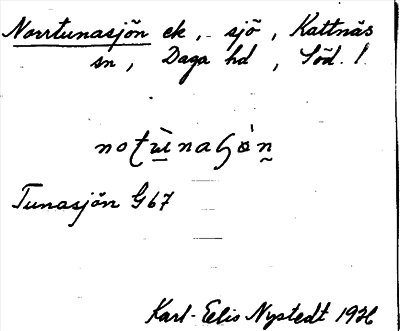 Norrtunasjön ek, sjö, Kattnäs
sn, Daga hd, Söd. l.
Tunasjön G67
Karl-Eelis Nystedt 1936